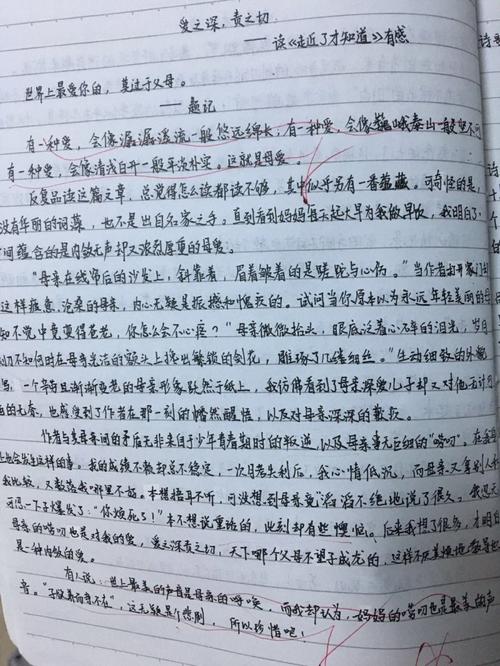 爱之深,责之切
——读《走近了才知道》有感
世界上最爱你的,莫过于父母。
——题记
有一种爱,会像潺潺溪流一般悠远绵长,有一种爱,会像巍峨泰山一般望不
有一种爱,会像清浅白开一般平淡朴实。这就是母爱。
反复品读这篇文章,总觉得怎么读都读不够,其中似乎另有一番蕴藏。可奇怪的是,
没有华丽的词藻,也不是出自名家之手,直到看到妈妈每天起大早为我做早饭,我明白了,
间蕴含的是内敛无声却又浓烈厚重的母爱。
"母亲在线帘后的沙发上,斜靠着,眉着皱着的是蹉跎与心伤。"当作者打开家门
这样疲惫、沧桑的母亲,内心无疑是振撼和愧疚的。试问当你原本以为永远年轻美丽的母
知不觉中竟变得苍老,你怎么会不心疼?"母亲微微抬头,眼底泛着心碎的泪光,岁月
们不知何时在母亲光洁的额头上挽出繁锁的刻花,雕琢了几缕细丝。"生动细致的外貌
写,一个年日渐渐变老的母亲形象跃然于纸上,我仿佛看到了母亲深爱儿子却又对他无计
的无奈,也感受到了作者在那一刻的幡然醒悟,以及对母亲深深的歉疚。
作者与其母亲间的矛盾无非来自于少年青春期时的叛逆,以及母亲事无巨细的"唠叨"。在
上也会发生这样的事。我的成绩不敬却总不稳定,一次月考失利后,我心情低沉,而母亲又拿别人
我比较,又数落我"那里不好"。本想捂耳不听,可没想到母亲竟滔滔不绝地说了很久。我忍无
可忍一下子爆发了:"你烦死了!"本不想说重话的,此刻却有些懊恼。后来我想了很多,才明白
母亲的唠叨也是对我的爱,爱之深责之切,天下哪个父母不望子成龙的,这样不厌其烦地教导也
是一种内敛的爱。
有人说:世上最美的声音是母亲的呼唤,而我却认为,妈妈的唠叨也是最美的声
音。"子欲养而亲不在",这无疑是个悲剧,所以珍惜吧!